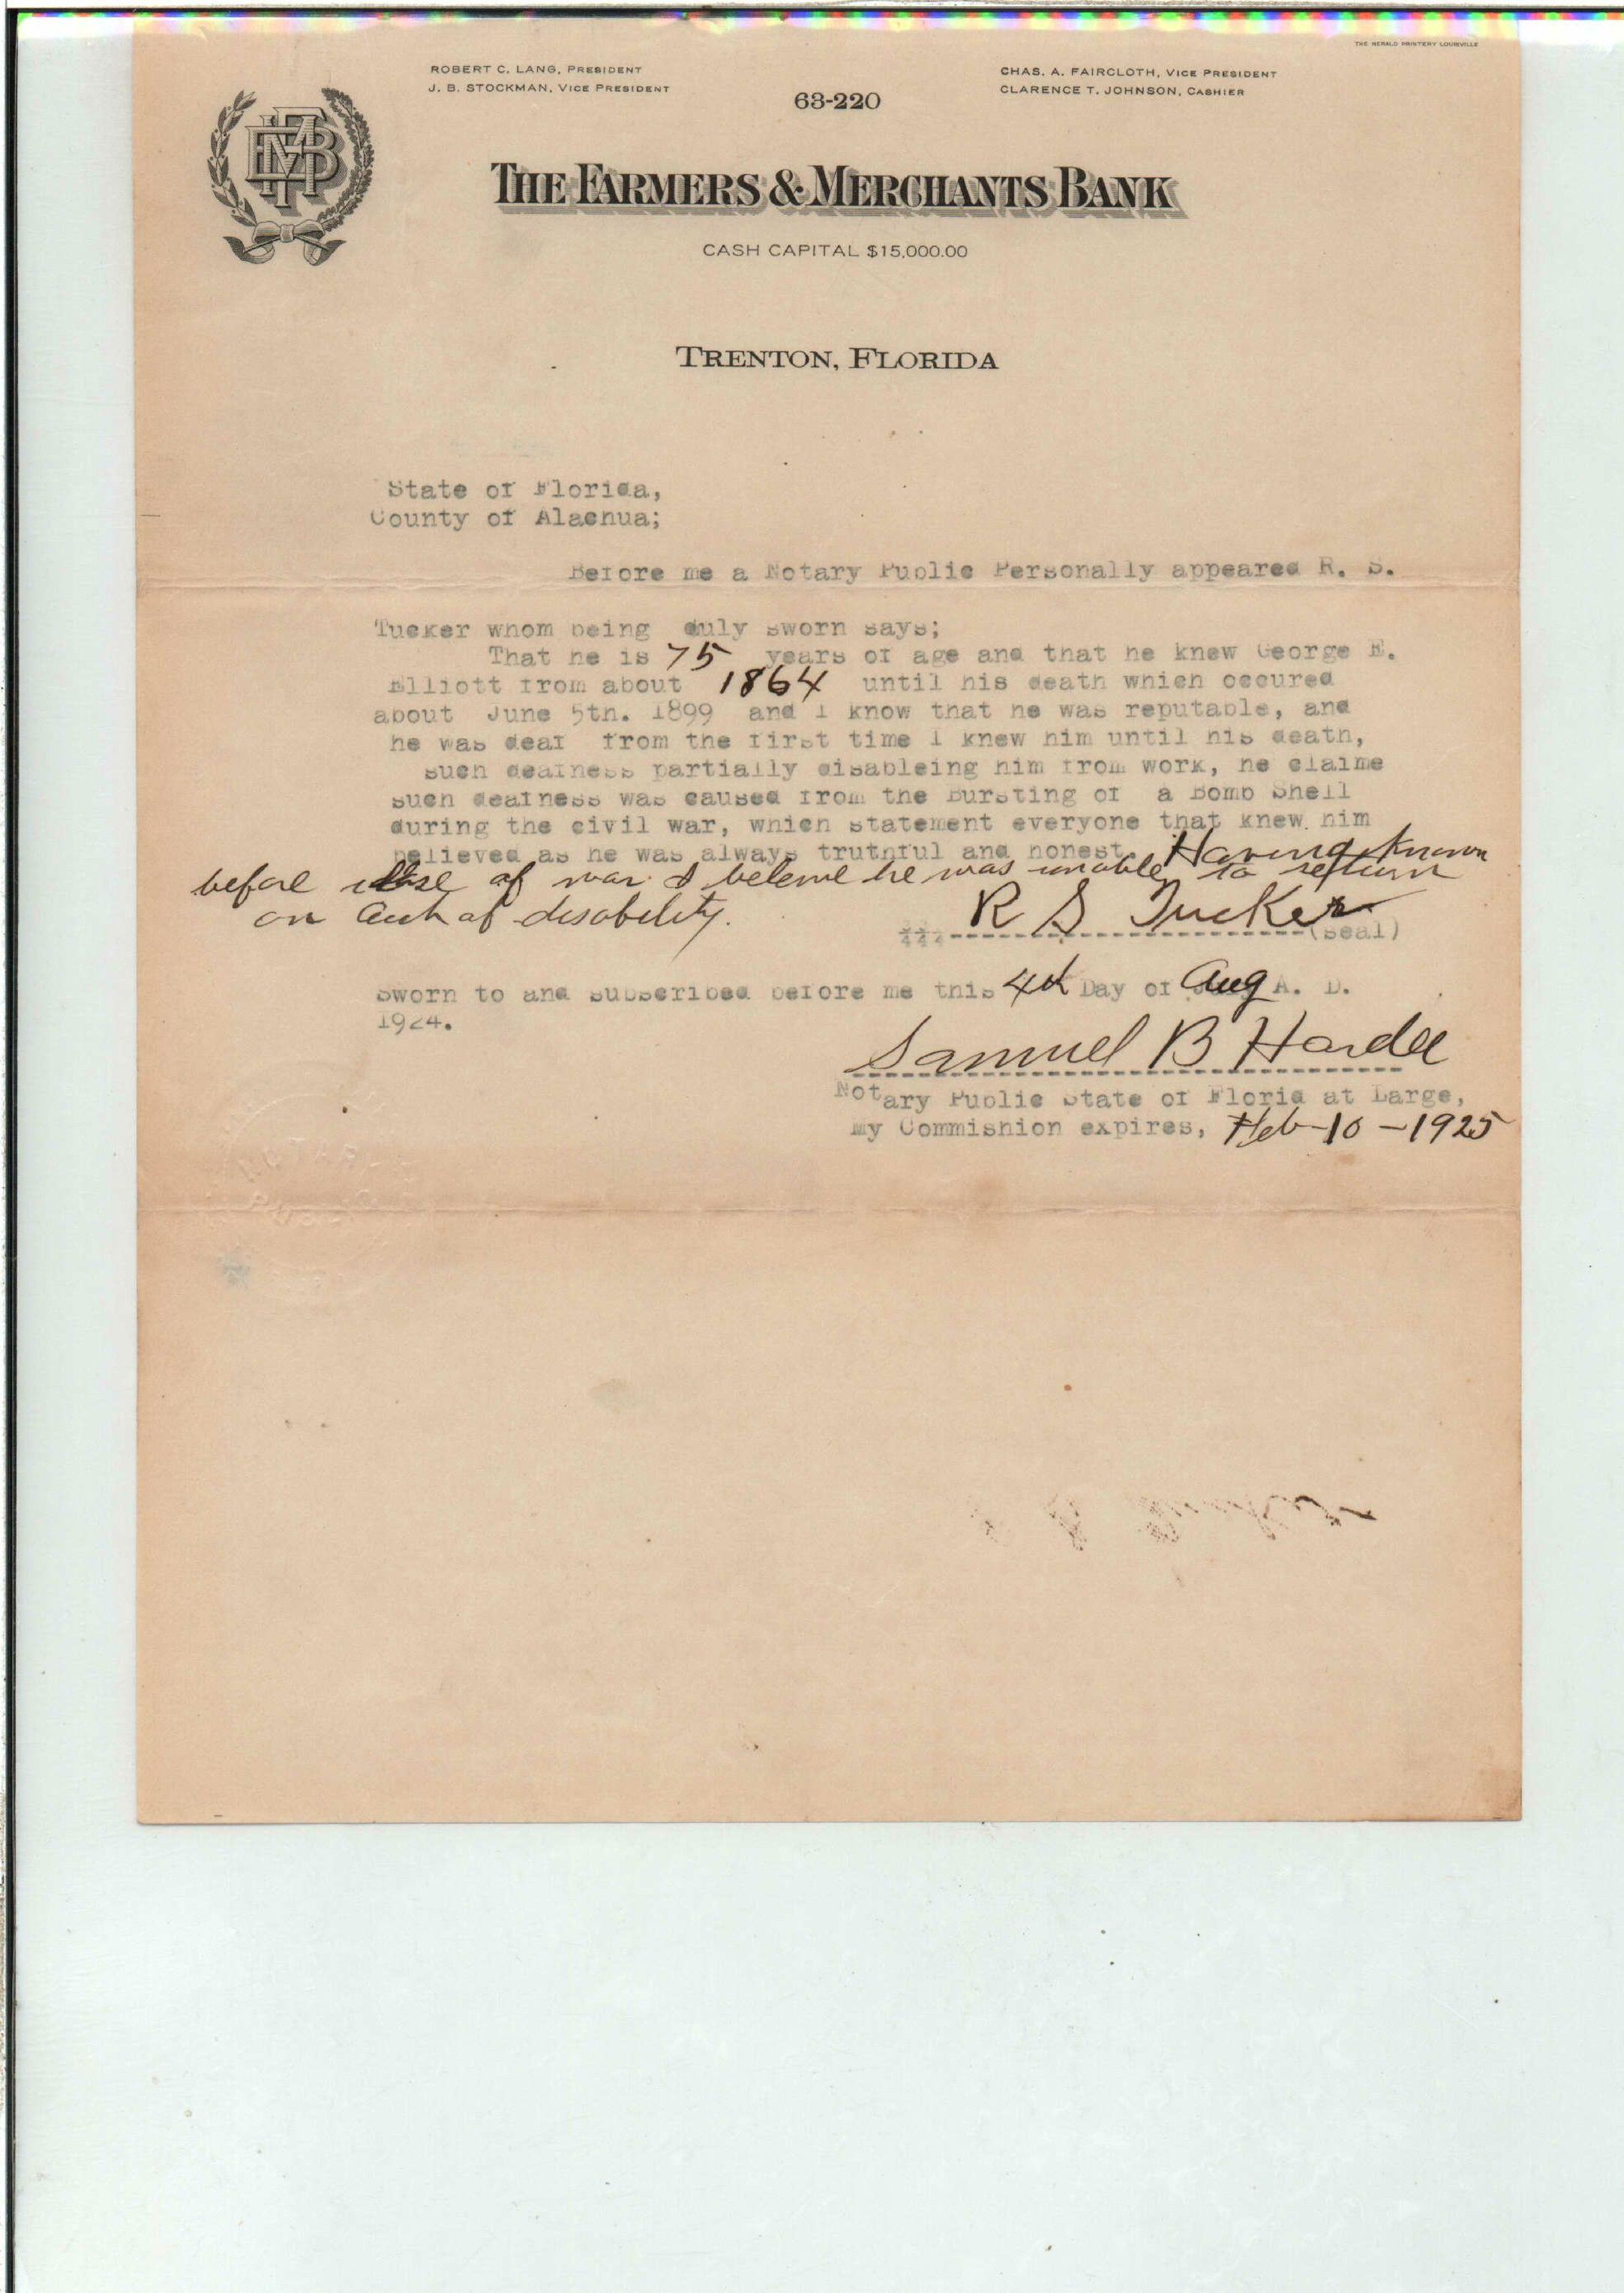 THE HERALD PRINTERY LOUISVILLE
ROBERT C. LANG, PRESIDENT
J. B. STOCKMAN, VICE PRESIDENT
63-220
CHAS. A. FAIRCLOTH, VICE PRESIDENT
CLARENCE T. JOHNSON, CASHIER
THE FARMERS & MERCHANTS BANK
CASH CAPITAL $15,000.00
TRENTON, FLORIDA
State of Florida,
County of Alachua;
Before me a Notary Public Personally appeared R. S.
Tucker whom being duly sworn says;
That he is 75 years of age and that he knew George E.
Elliott from about 1864 until his death which occured
about June 5th. 1899 and I know that he was reputable, and
he was deaf from the first time I knew him until his death,
such deafness partially disableing him from work, he claime
such deafness was caused from the Bursting of a Bomb Shell
during the civil war, which statement everyone that knew him
believed as he was always truthful and honest. Having known
before close of war I beleive he was unable to return
on acct of disability.
R S Tucker
(Seal)
Sworn to and subscribed before me this 4th Day of Aug A. D.
1924.
Samuel B Hardee
Notary Public State of Florid at Large,
My Commishion expires, Feb-10-1925